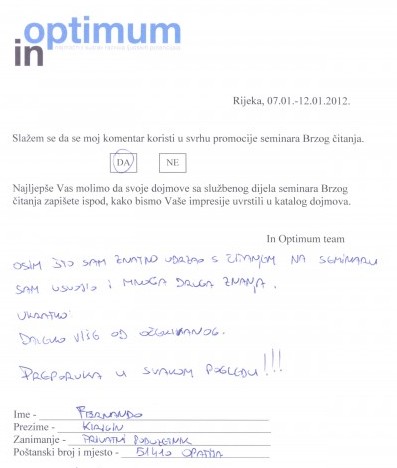 optimum
in
Rijeka, 07.01.-12.01.2012.
Slažem se da se moj komentar koristi u svrhu promocije seminara Brzog čitanja.
DA NE
Najljepše Vas molimo da svoje dojmove sa službenog dijela seminara Brzog
čitanja zapišete ispod, kako bismo Vaše impresije uvrstili u katalog dojmova.
In Optimum team
OSIM ŠTO SAM ZNATNO UBRZAO S ČITANJEM NA SEMINARU
SAM USVOJIO I MNOGA DRUGA ZNANJA.
UKRATKO:
DALEKO VIŠE OD OČEKIVANOG.
PREPORUKA U SVAKOM POGLEDU!!!
Ime - FERNANDO
Prezime - KIRIGIN
Zanimanje - PRIVATNI PODUZETNIK
Poštanski broj i mjesto - 51410 OPATIJA